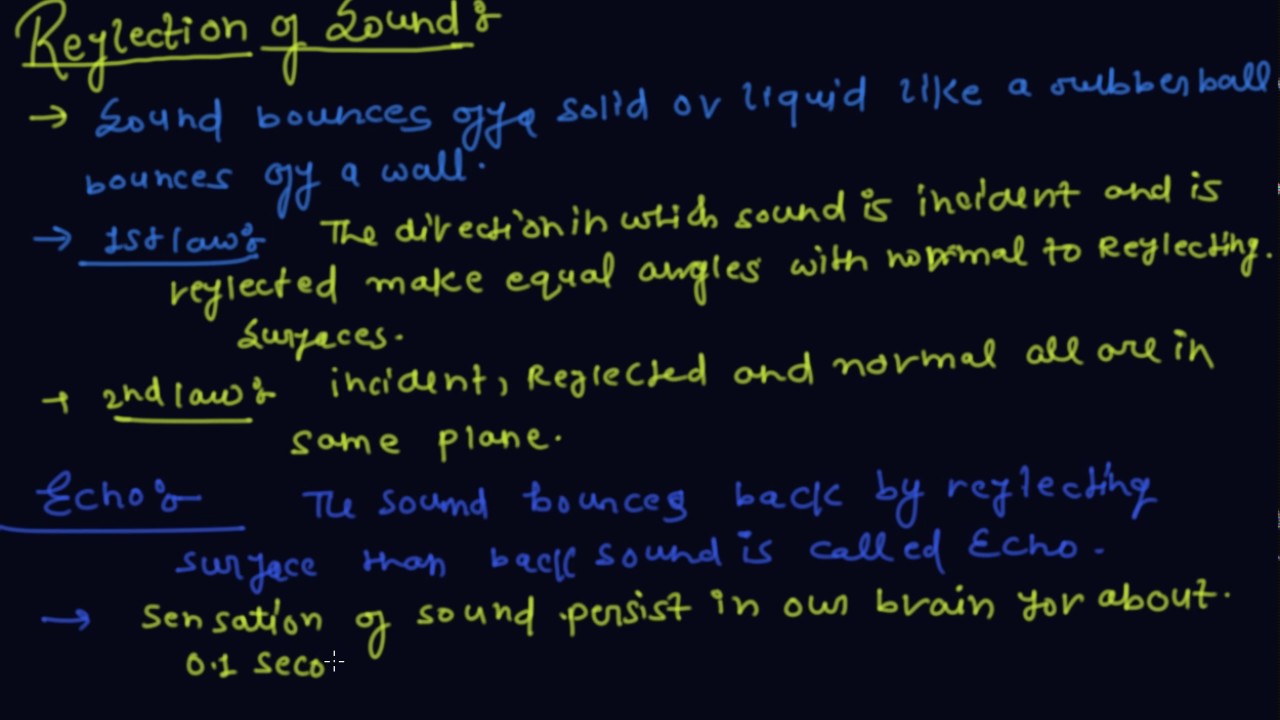 Reflection of Sound :
→ Sound bounces off a solid or liquid like a rubber ball
bounces off a wall.
→ 1st law : The direction in which sound is incident and is
reflected make equal angles with normal to Reflecting.
Surfaces.
→ 2nd law : incident, Reflected and normal all are in
same plane.
Echo : The sound bounces back by reflecting
surface than back sound is called Echo.
→ Sensation of sound persist in our brain for about.
0.1 seco